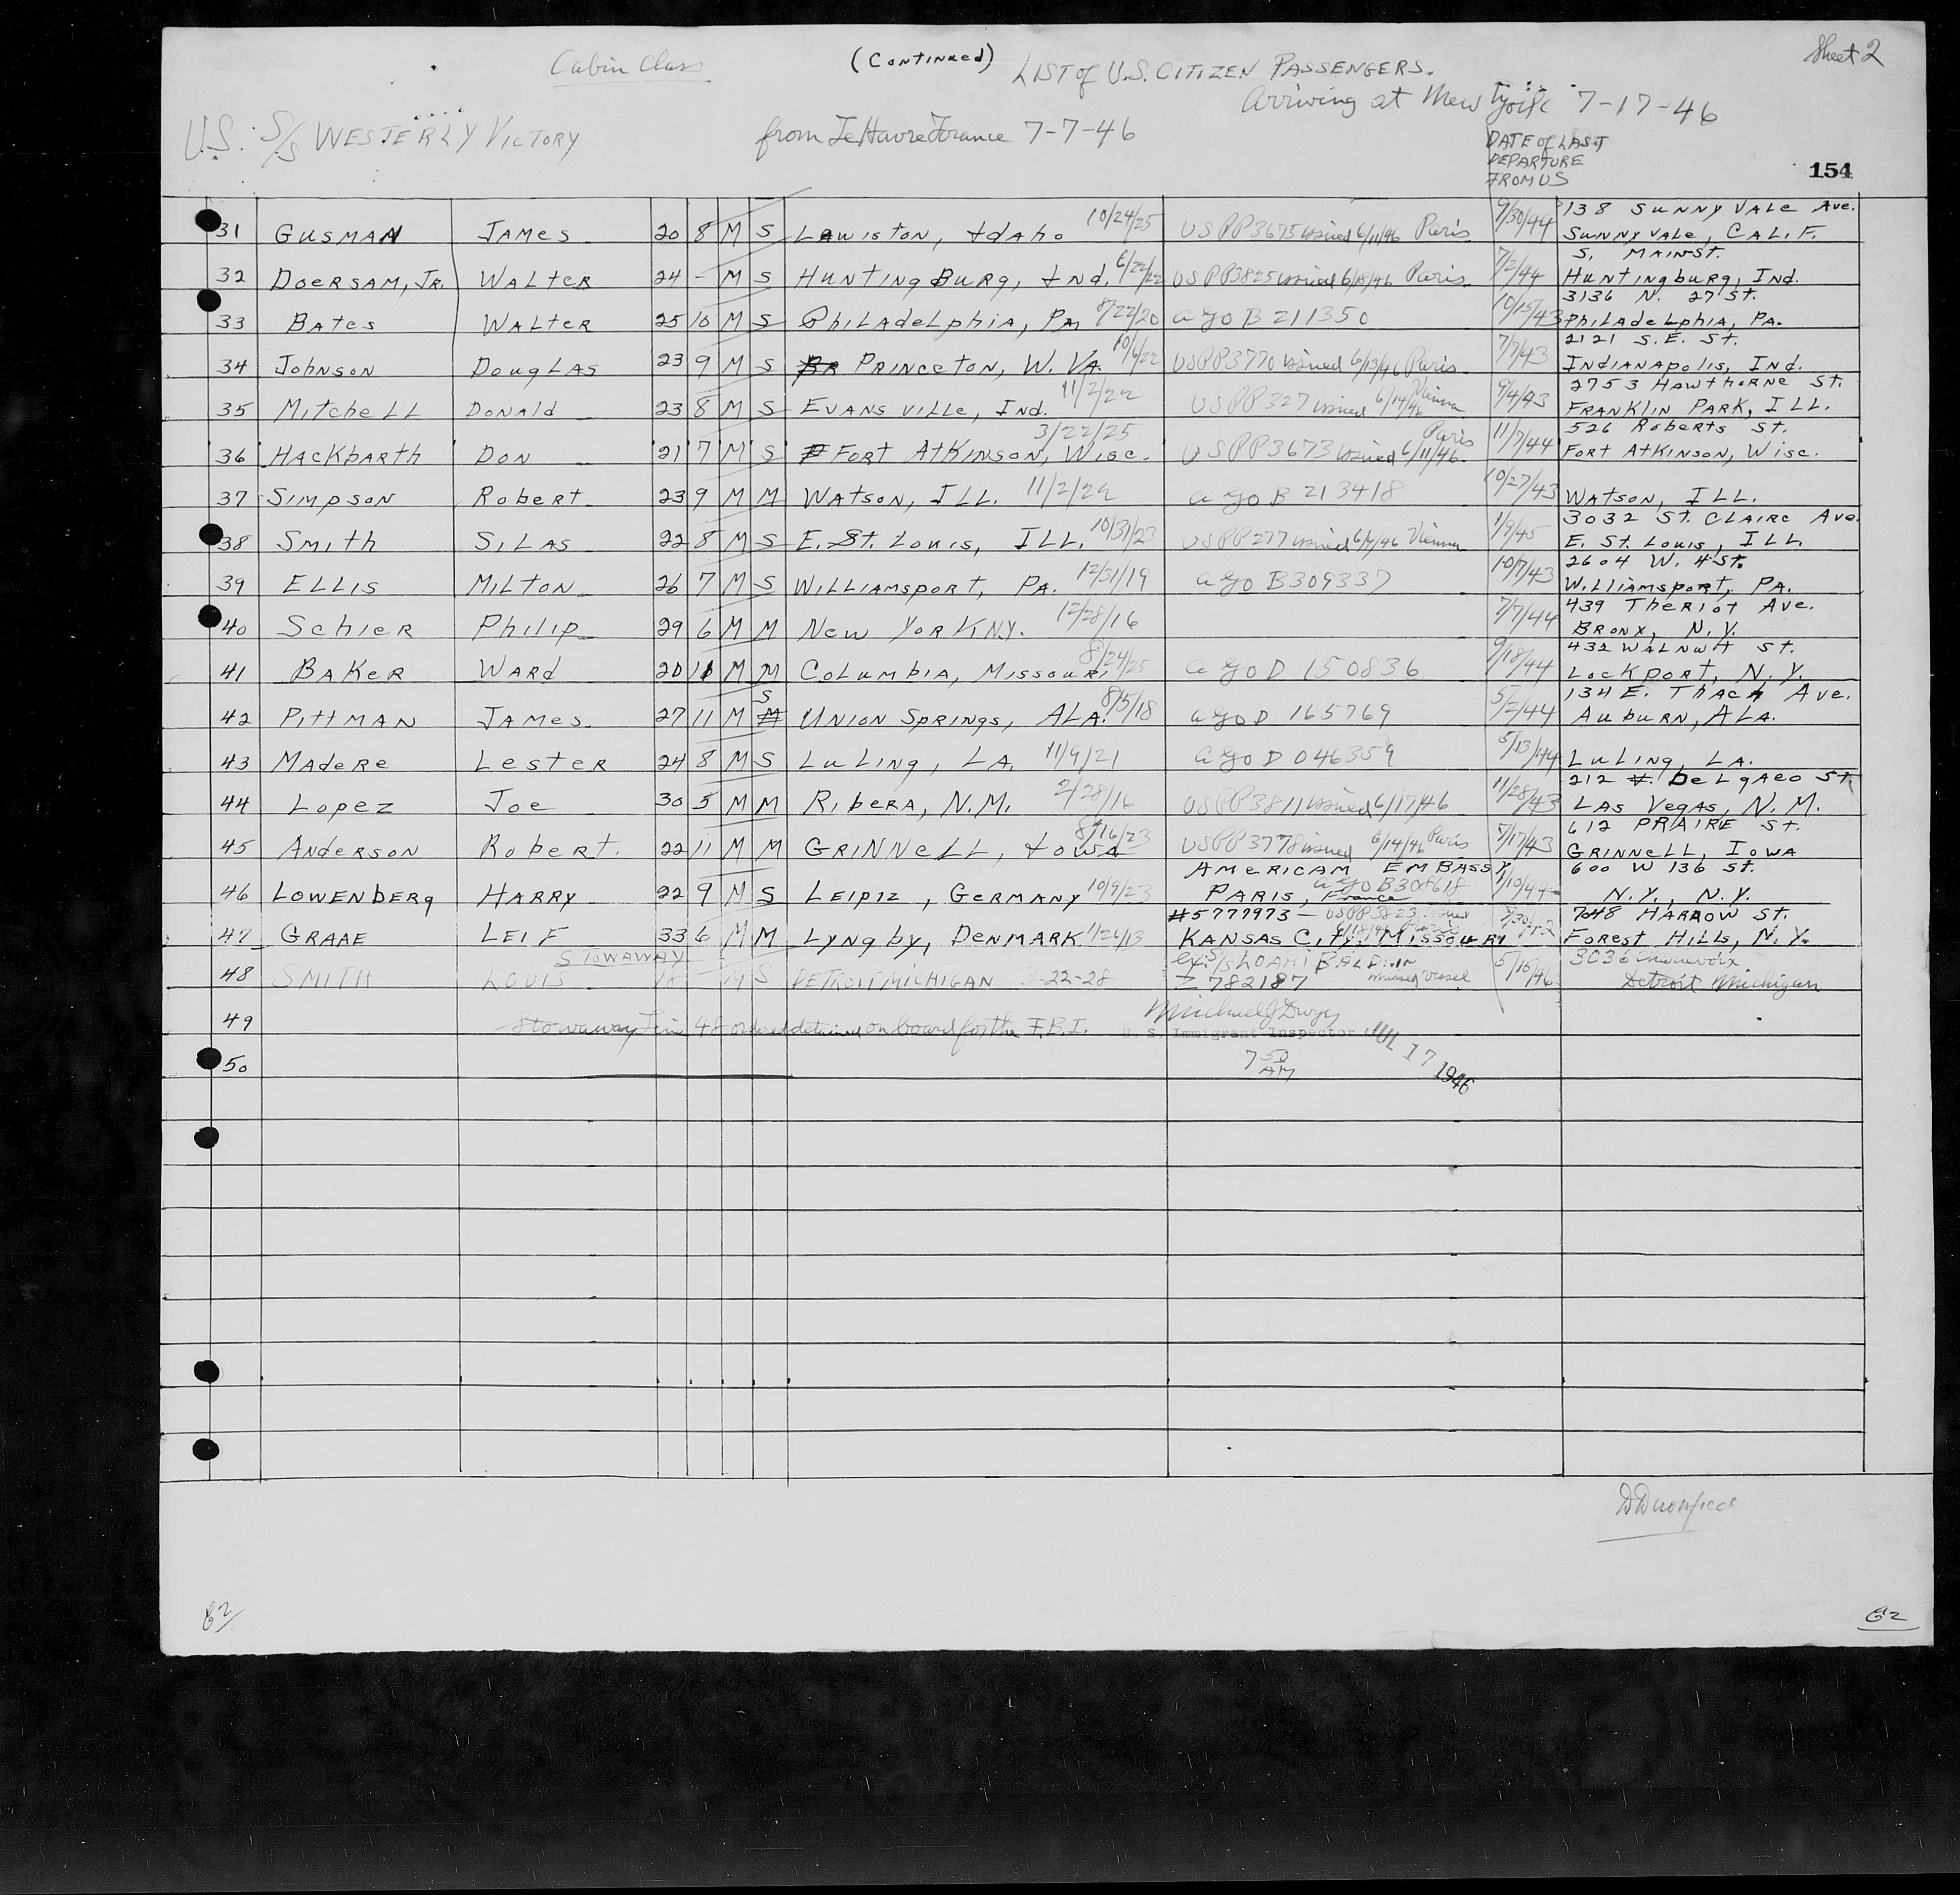 Cabin Class
(Continued)
LIST of U.S. CITIZEN PASSENGERS.
Sheet 2
Arriving at New York 7-17-46
U.S. S/S WESTERLY VICTORY
from Le Havre France 7-7-46
DATE of LAST
DEPARTURE
FROM US
154
138 SUNNYVALE Ave.
31 GUSMAN JAMES 20 8 M S LEWISTON, IdAho 10/24/25 USPP3675 issued 6/11/46 Paris 9/30/44 SUNNYVALE, CALIF.
S. MAIN ST.
32 DOERSAM, JR. WALTER 24 - M S HUNTINGBURG, Ind. 6/22/22 USPP3825 issued 6/18/46 Paris 7/2/44 HUNTINGBURG, Ind.
3136 N. 27 St.
33 BATES WALTER 25 10 M S PHILADELPHIA, PA. 8/22/20 AGO B 211350 10/15/43 PHILADELPHIA, PA.
2121 S.E. St.
34 JOHNSON DOUGLAS 23 9 M S PRINCETON, W. VA. 10/6/22 USPP3770 issued 6/13/46 Paris 7/7/43 INDIANAPOLIS, Ind.
2753 HAWTHORNE St.
35 MITCHELL DONALD 23 8 M S EVANSVILLE, Ind. 11/2/22 USPP327 issued 6/14/46 Vienna 9/4/43 FRANKLIN PARK, ILL.
526 ROBERTS St.
36 HACKBARTH DON 21 7 M S FORT ATKINSON, WISC. 3/22/25 USPP3673 issued 6/11/46 Paris 11/7/44 FORT ATKINSON, WISC.
37 SIMPSON ROBERT 23 9 M M WATSON, ILL. 11/2/22 AGO B 213418 10/27/43 WATSON, ILL.
3032 ST. CLAIRE Ave.
38 SMITH SILAS 22 8 M S E. ST. LOUIS, ILL. 10/31/23 USPP277 issued 6/4/46 Vienna 1/9/45 E. ST. LOUIS, ILL.
2604 W. 4 St.
39 ELLIS MILTON 26 7 M S WILLIAMSPORT, PA. 12/31/19 AGO B309337 10/7/43 WILLIAMSPORT, PA.
439 THERIOT Ave.
40 SCHIER PHILIP 29 6 M M NEW YORK N.Y. 12/28/16 7/7/44 BRONX, N.Y.
432 WALNUT St.
41 BAKER WARD 20 10 M M COLUMBIA, MISSOURI 8/24/25 AGO D 150836 9/18/44 LOCKPORT, N.Y.
134 E. THACH Ave.
42 PITTMAN JAMES 27 11 M S UNION SPRINGS, ALA. 8/5/18 AGO D 165769 5/2/44 AUBURN, ALA.
43 MADERE LESTER 24 8 M S LULING, LA. 11/9/21 AGO D 046359 5/13/44 LULING, LA.
212 DELGADO St.
44 LOPEZ JOE 30 5 M M RIBERA, N.M. 2/28/16 USPP3811 issued 6/17/46 11/28/43 LAS VEGAS, N.M.
612 PRAIRIE St.
45 ANDERSON ROBERT 22 11 M M GRINNELL, IOWA 8/16/23 USPP3778 issued 6/14/46 Paris 7/17/43 GRINNELL, IOWA
AMERICAM EMBASSY 600 W 136 St.
46 LOWENBERG HARRY 22 9 M S LEIPIZ, GERMANY 10/9/23 PARIS, France AGO B308618 1/10/44 N.Y., N.Y.
#5777973 - USPP3823 issued 6/18/46 Paris 7048 HARROW St.
47 GRAAE LEIF 33 6 M M LYNGBY, DENMARK 1/26/13 KANSAS CITY, MISSOURI FOREST HILLS, N.Y.
STOWAWAY ex. S/S LOAMI BALDWIN
48 SMITH LOUIS 18 M S DETROIT MICHIGAN 3-22-28 Z 782187 missed vessel 5/15/46 Detroit Michigan
49 Stowaway Line 48 ordered detained on board for the F.B.I.
Michael J Dwyer
U. S. Immigrant Inspector
JUL 17 1946
50 7 50 AM
62
62